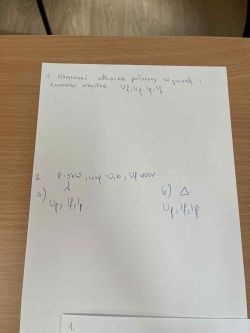 1. Narysować odbiornik połączony w gwiazdę i
zaznaczyć wszystkie Uf, Up, Ip, If
2. P=5kW, cosφ=0,6, Uf=200V
a) λ
Up, If, Ip
b) △
Up, If, Ip
1.